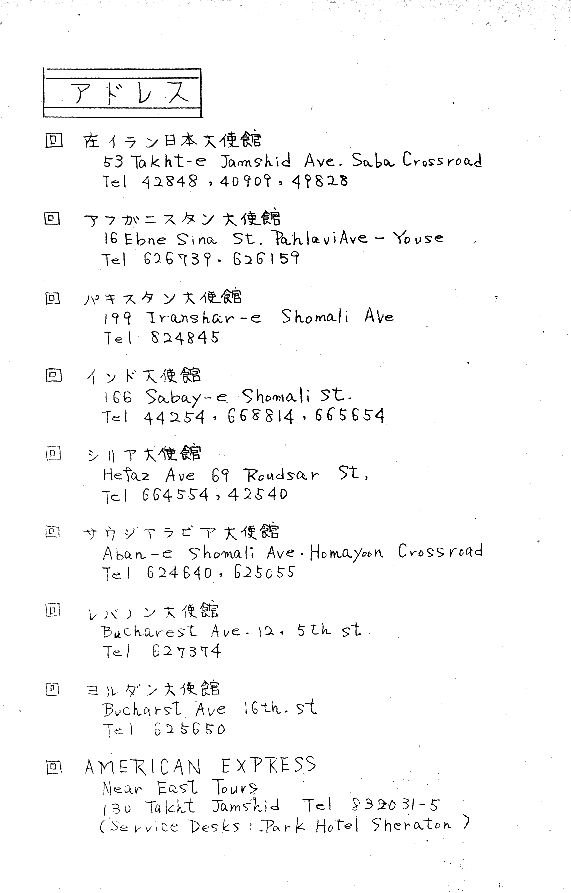 アドレス
回 在イラン日本大使館
53 Takht-e Jamshid Ave. Saba Crossroad
Tel 42848, 40909, 49828
回 アフガニスタン大使館
16 Ebne Sina St. Pahlavi Ave - Youse
Tel 626739. 626159
回 パキスタン大使館
199 Iranshar-e Shomali Ave
Tel 824845
回 インド大使館
166 Sabay-e Shomali St.
Tel 44254, 668814, 665654
回 シリア大使館
Hefaz Ave 69 Roudsar St,
Tel 664554, 42540
回 サウジアラビア大使館
Aban-e Shomali Ave. Homayoon Crossroad
Tel 624640, 625055
回 レバノン大使館
Bucharest Ave. 12, 5th st.
Tel 627374
回 ヨルダン大使館
Bucharst Ave 16th. st
Tel 625650
回 AMERICAN EXPRESS
Near East Tours
130 Takht Jamshid Tel 832031-5
(Service Desks: Park Hotel Sheraton)